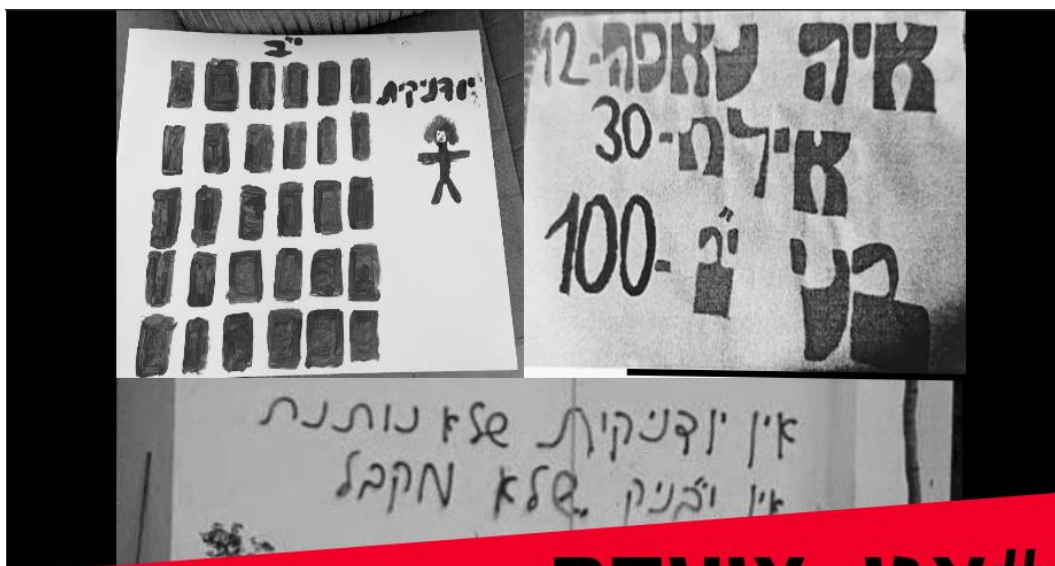 י"ב
יודניקית
איה נאפה-12
אילת-30
בני י"ב-100
אין יודניקית שלא נותנת
אין י"בניק שלא מקבל